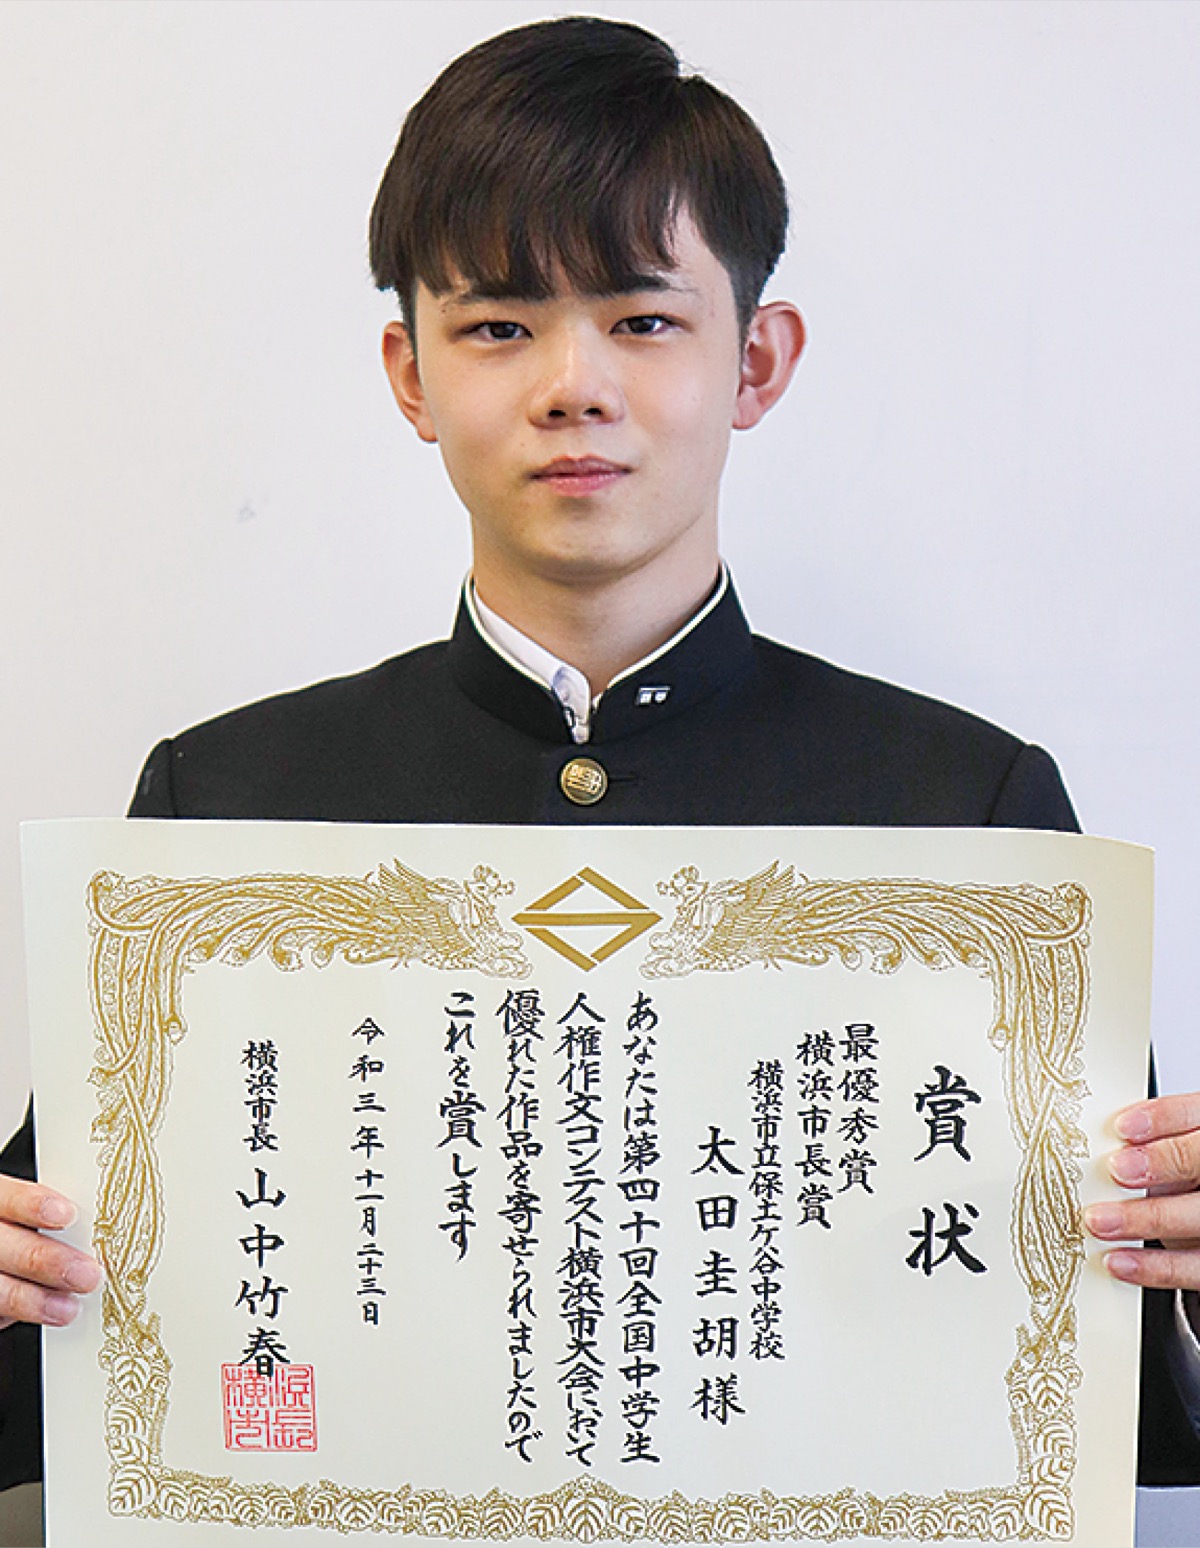 賞状
最優秀賞
横浜市長賞
横浜市立保土ケ谷中学校
太田圭胡様
あなたは第四十回全国中学生
人権作文コンテスト横浜市大会において
優れた作品を寄せられましたので
これを賞します
令和三年十一月二十三日
横浜市長 山中竹春